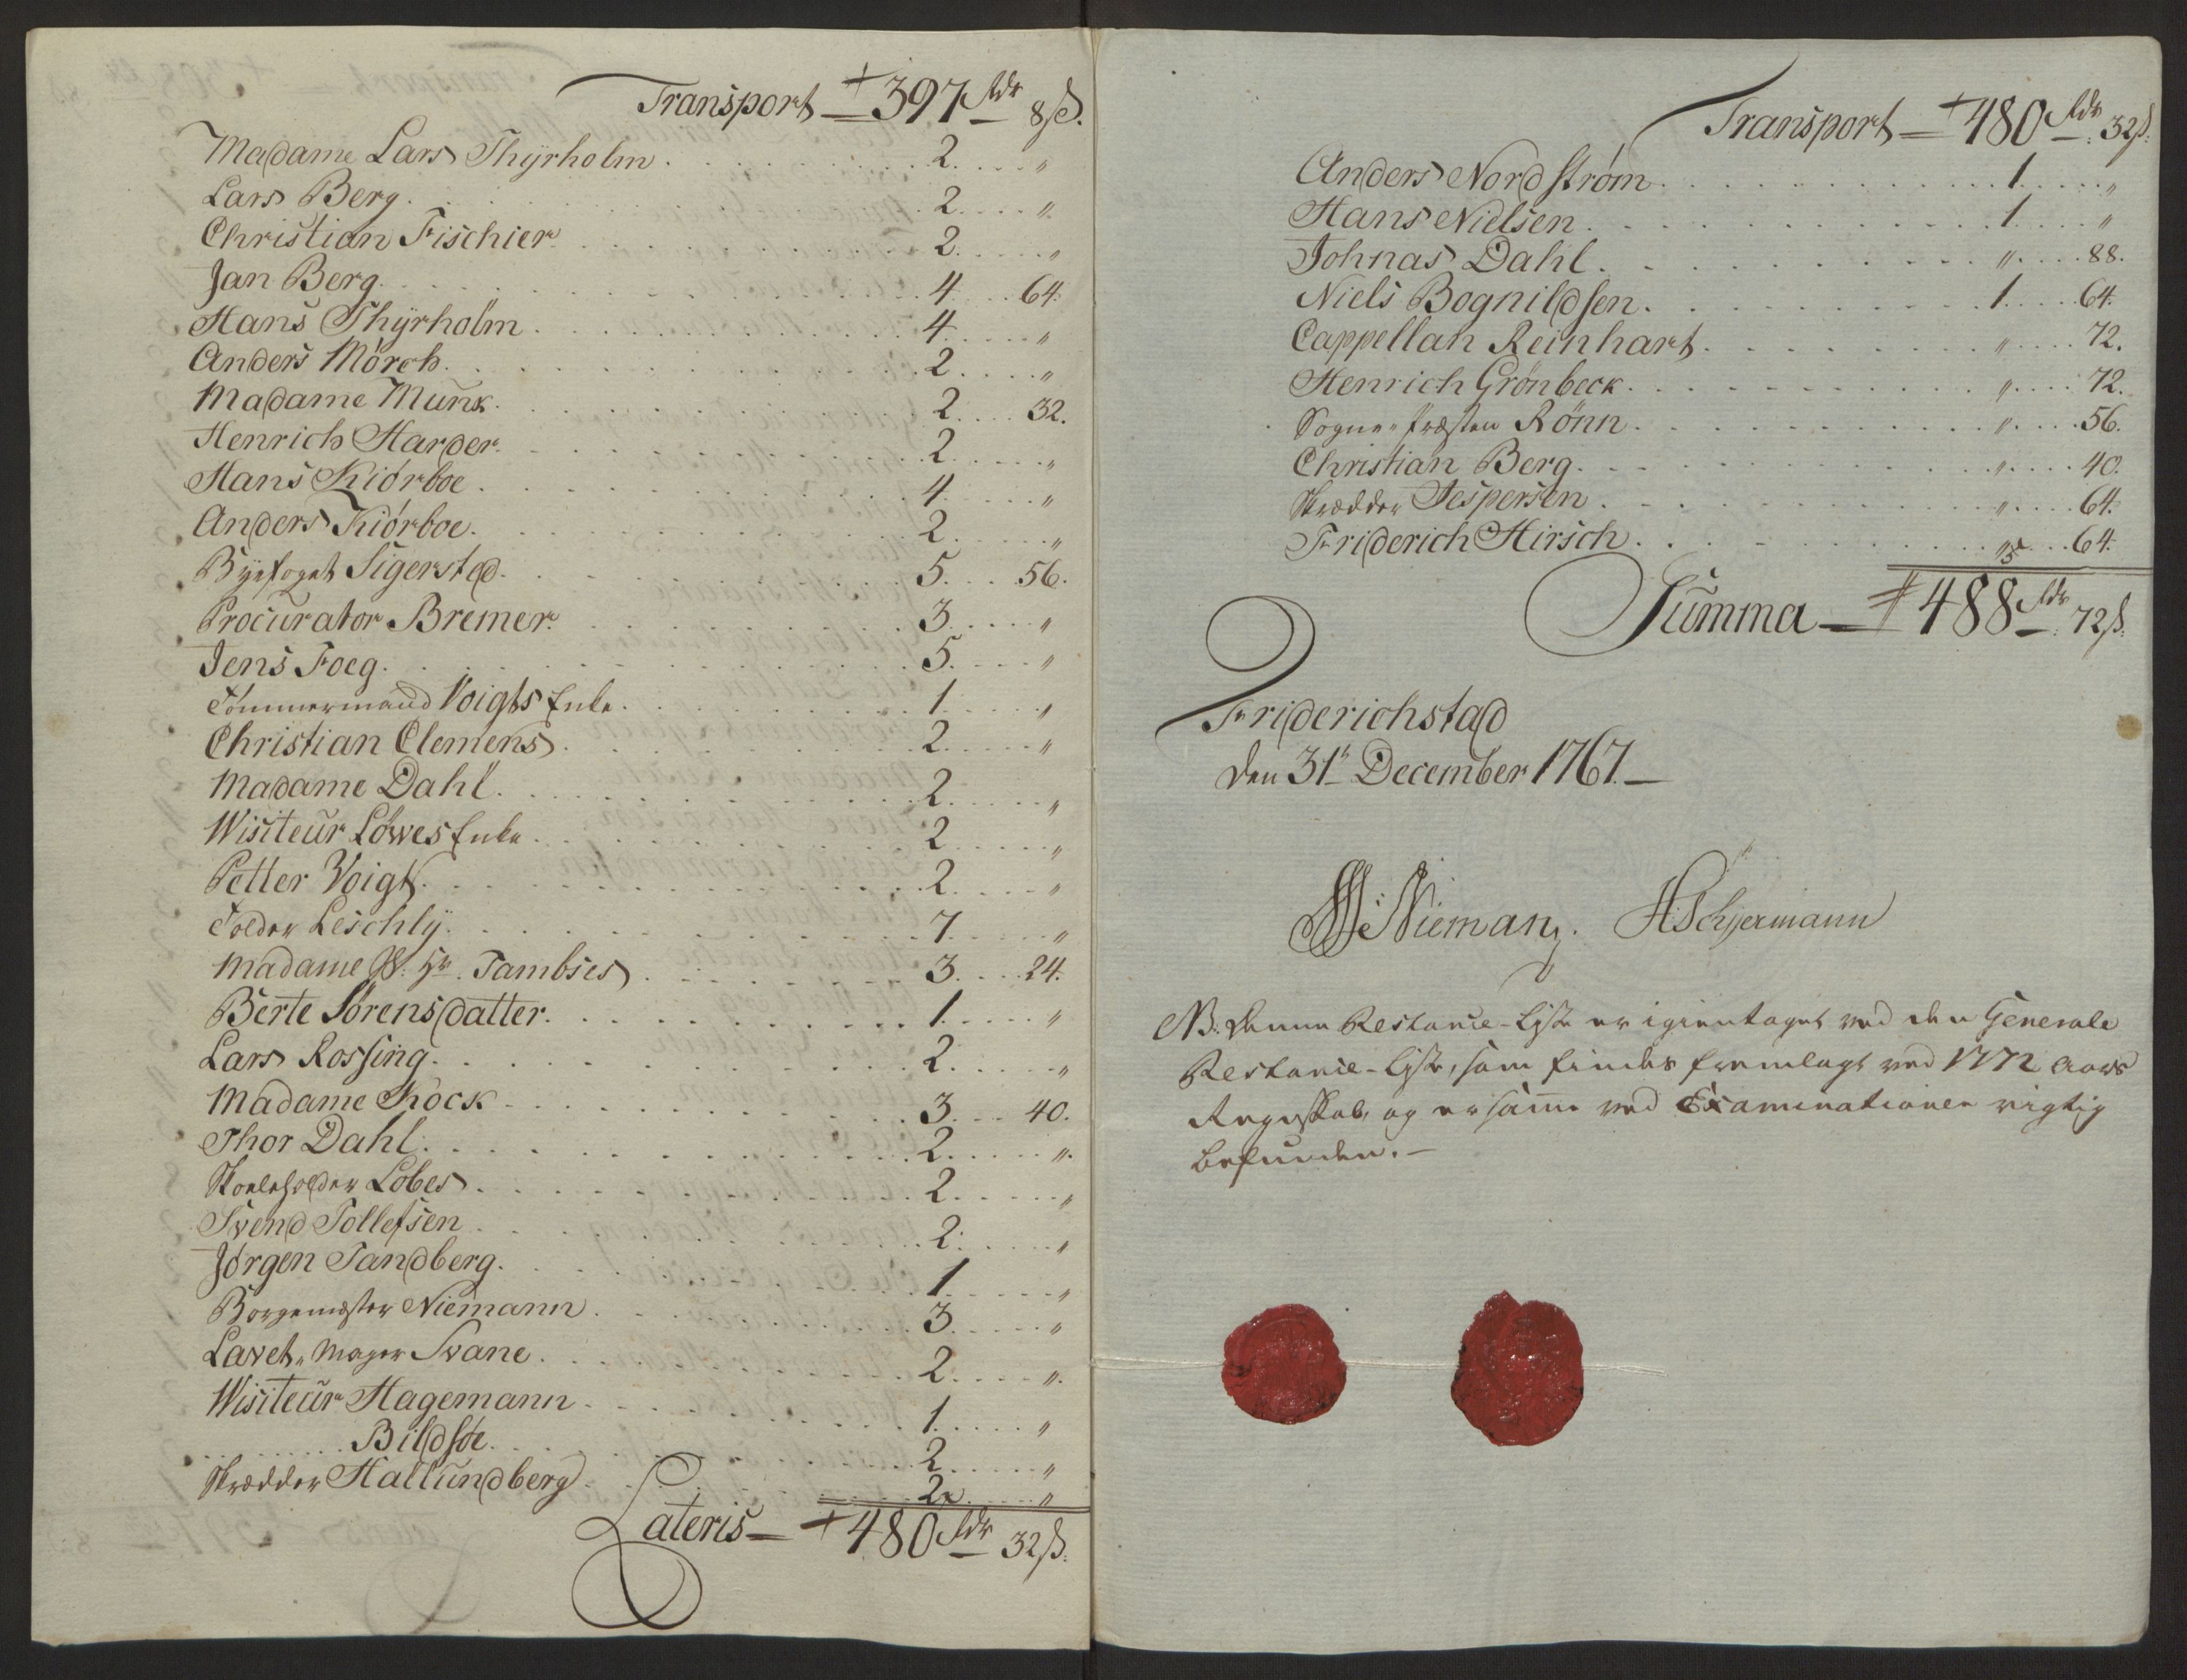 Transport — 397 Rdr 8 ß.
Madame Lars Thÿrholm . . . 2 . . . "
Lars Berg . . . 2 . . . "
Christian Fischier . . . 2 . . . "
Jan Berg . . . 4 . . . 64.
Hans Thÿrholm . . . 4 . . . "
Anders Mörch . . . 2 . . . "
Madame Munk . . . 2 . . . 32.
Henrich Harder . . . 2 . . . "
Hans Kiörboe . . . 4 . . . "
Anders Kiörboe . . . 2 . . . "
Byefoget Sigersted . . . 5 . . . 56.
Procurator Bremer . . . 3 . . . "
Jens Foeg . . . 5 . . . "
Tömmermand Voigts Enke . . . 1 . . . "
Christian Clemens . . . 2 . . . "
Madame Dahl . . . 2 . . . "
Wisiteur Löwes Enke . . . 2 . . . "
Petter Voigt . . . 2 . . . "
Tolder Leschlÿ . . . 7 . . . "
Madame Tambses . . . 3 . . . 24.
Berte Sörensdatter . . . 1 . . . "
Lars Rossing . . . 2 . . . "
Madame Kock . . . 3 . . . 40.
Thor Dahl . . . 2 . . . "
Skoleholder Lobes . . . 2 . . . "
Svend Tollefsen . . . 2 . . . "
Jörgen Sandberg . . . 1 . . . "
Borgemester Niemann . . . 3 . . . "
Lavet, Mager Svane . . . 2 . . . "
Wisiteur Hagemann . . . 1 . . . "
. . . Bildsöe . . . 2 . . . "
Skrædder Hallundberg . . . 2 . . . "
Lateris — 480 Rdr 32 ß.
Transport — 480 Rdr 32 ß.
Anders Nordström . . . 1 . . . "
Hans Nielsen . . . 1 . . . "
Johnas Dahl . . . " . . . 88.
Niels Bognildsen . . . 1 . . . 64.
Cappellan Reinhart . . . " . . . 72.
Henrich Grönbeck . . . " . . . 72.
Sogne-Præsten Rönn . . . " . . . 56.
Christian Berg . . . " . . . 40.
Skrædder Jespersen . . . " . . . 64.
Friderich Hirsch . . . " . . . 64.
Summa — 488 Rdr 72 ß.
Friderichstad
den 31te December 1767. —
Nieman. H Schjermann
NB. Denne Restance-Liste er igientaget ved den Generale
Restance-Liste, som findes fremlagt ved 1772 Aars
Regnskab, og er samme ved Examinationen rigtig
befunden. —